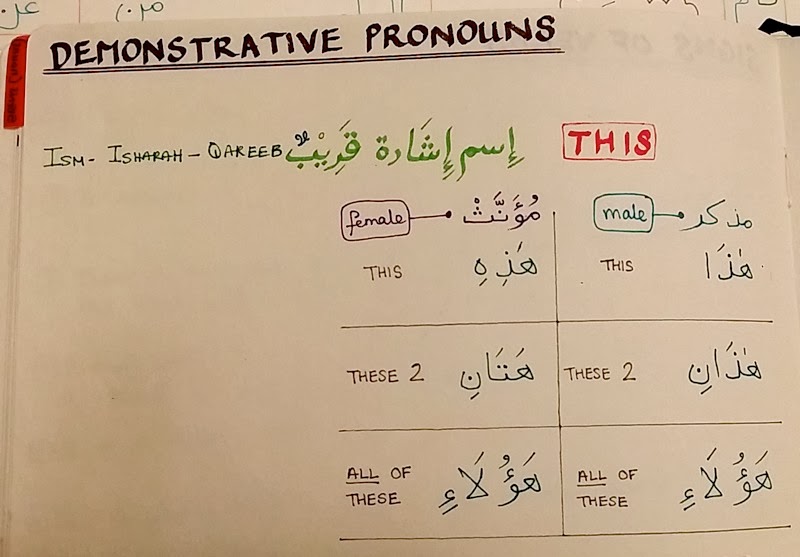 من
عن
DEMONSTRATIVE PRONOUNS
ISM - ISHARAH - QAREEB إِسم إِشَارة قَرِيْبٌ THIS
female مُؤَنَّثْ male مذكر
THIS هٰذِهِ THIS هٰذَا
THESE 2 هَتَانِ THESE 2 هٰذَانِ
ALL OF THESE هَؤُلَاءِ ALL OF THESE هَؤُلَاءِ